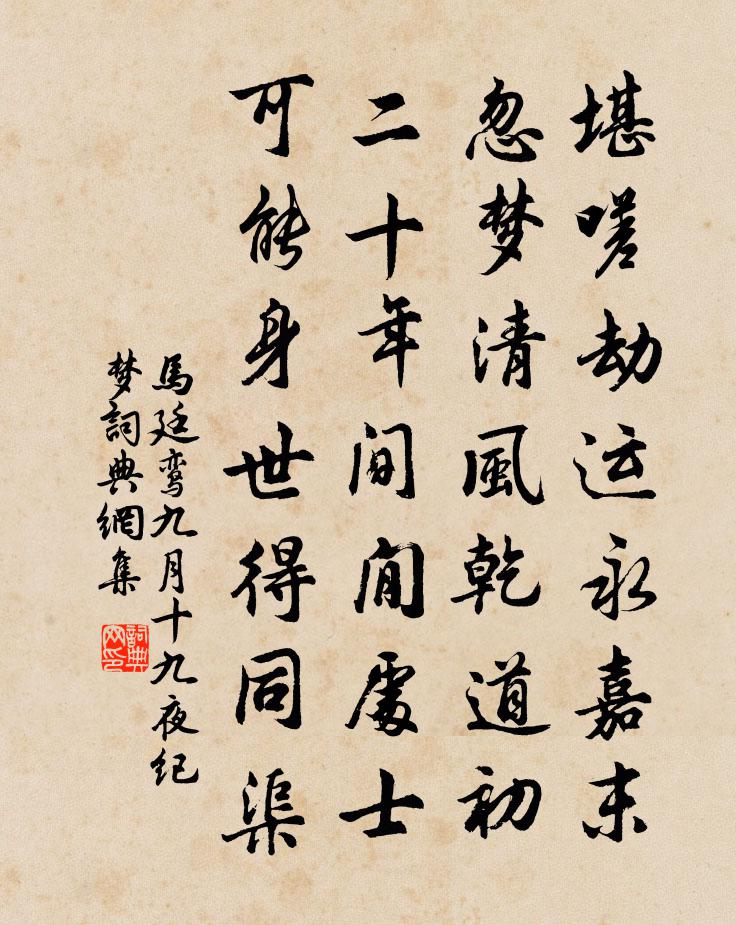 堪嗟劫运永嘉末
忽梦清風乾道初
二十年间閒處士
可能身世得同渠
馬廷鸾九月十九夜纪
梦詞典網集
詞典网印